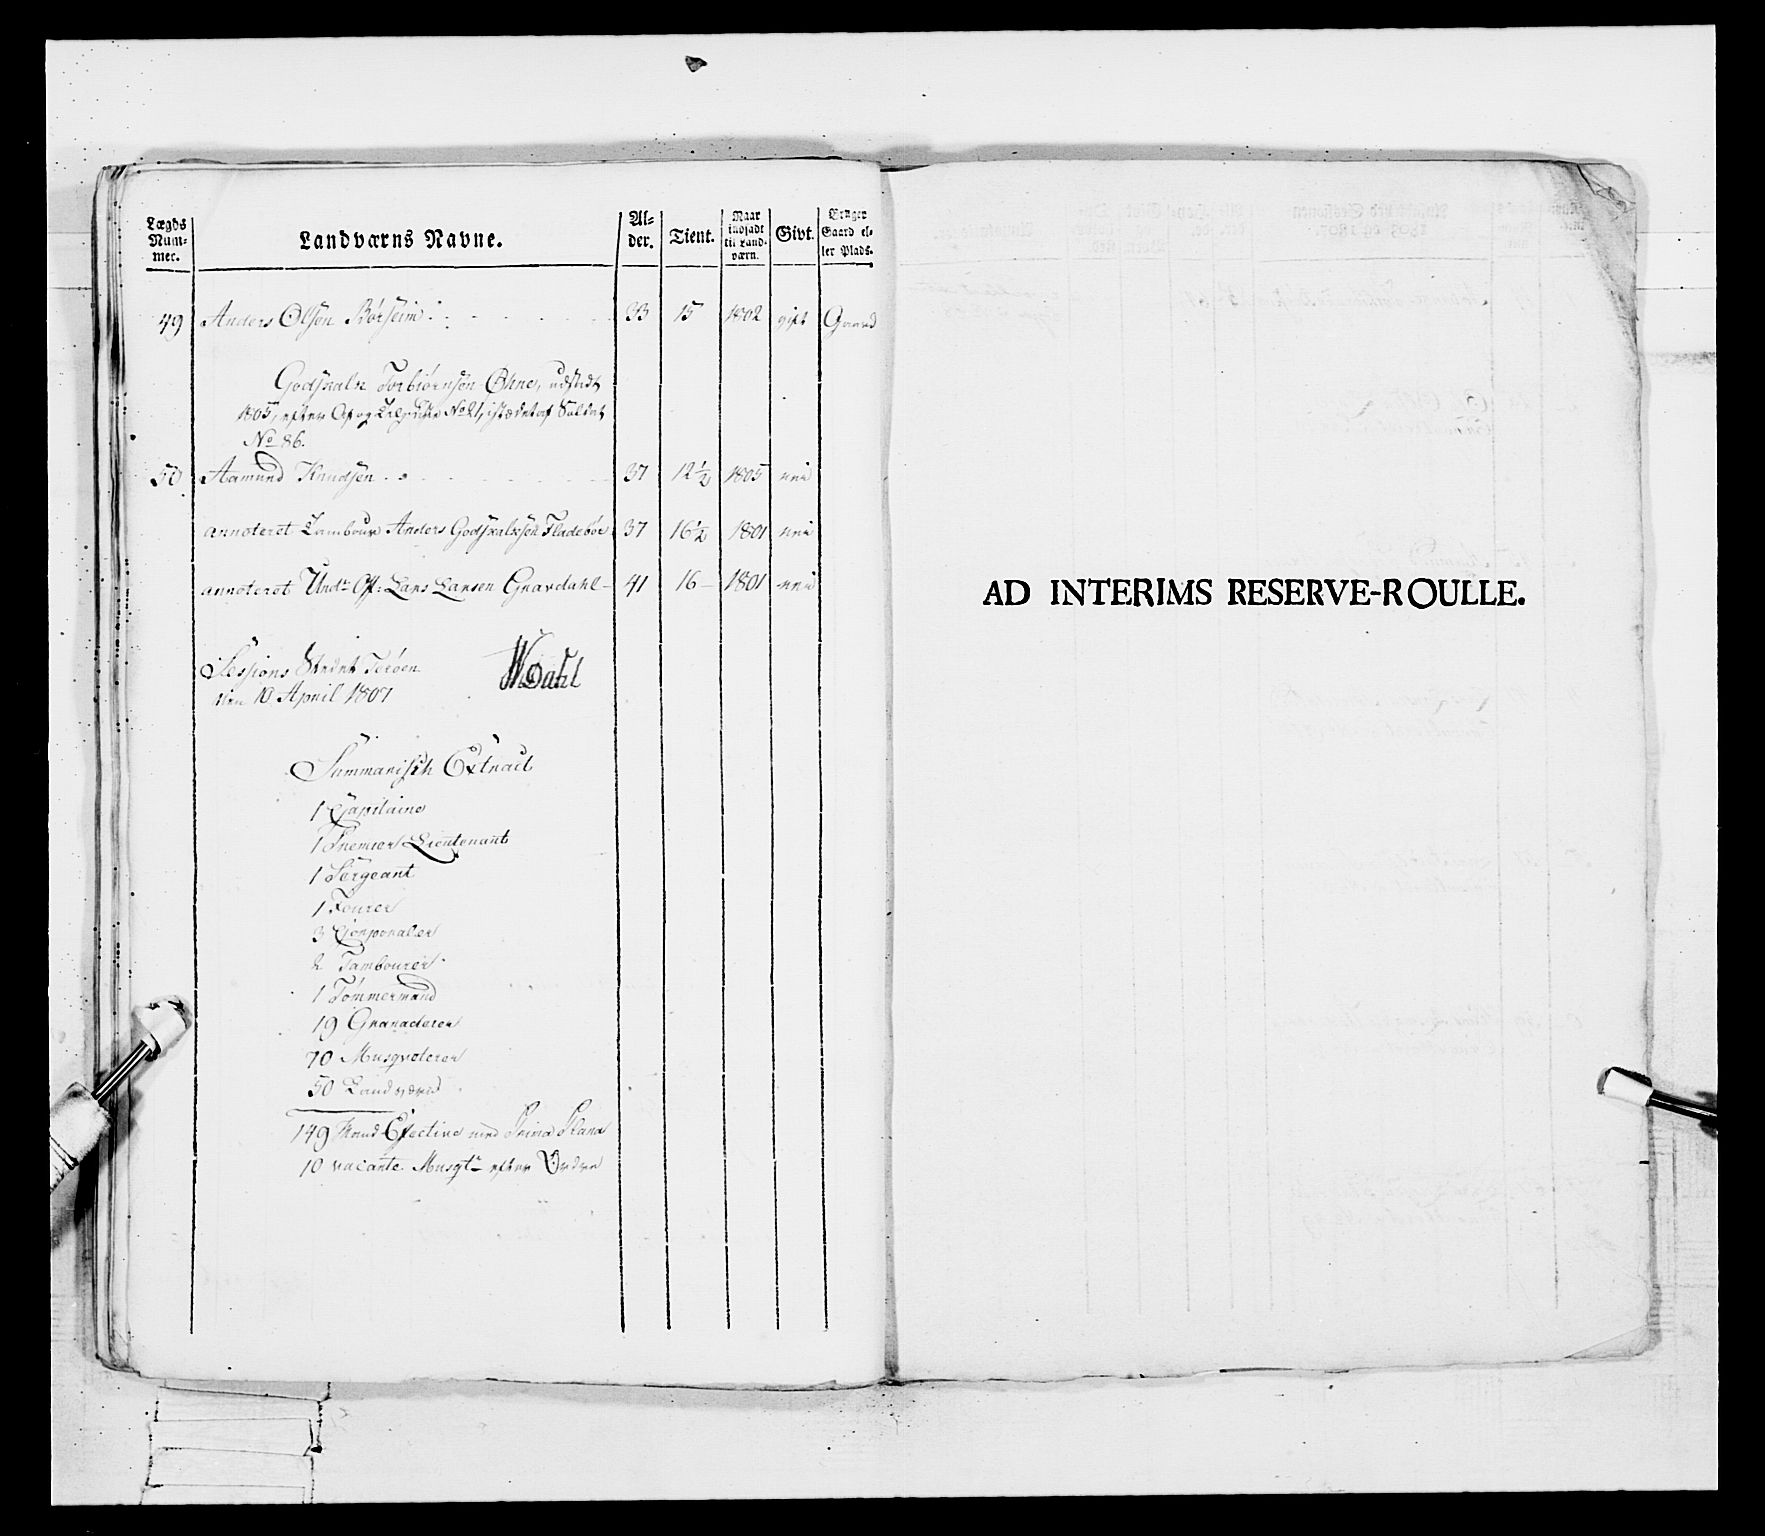 Lægds Num- mer. | Landværns Navne. | Al- der. | Tient. | Naar indsadt til Land- værn. | Givt. | Bruger Gaard el- ler Plads.
49 Anders Olsen Børseim 33 15 1802 gift Gaard
Godskalk Torbiørnsøn Øhne, udsladt
1805, efter Af og Liste No 21, istædet af Soldat
No 86.
50 Aamund Knudsen 37 12½ 1805 nei
annoteret Tambour Anders Godskalksen Fladebøe 37 16½ 1801 nei
annoteret Undr Off: Lars Larsen Gravdahl 41 16 1801 nei
Sessions Stedet Terøen
den 10 April 1807
WDahl
Summarisch Extract
1 Capitaine
1 Premier Lieutenant
1 Sergeant
1 Fourer
3 Corporaler
2 Tambourer
1 Tømmermand
19 Granaderer
70 Musqveterer
50 Landværn
149 Mand Efective med Prima Plana
10 vacante Musqtr efter Ordre
AD INTERIMS RESERVE-ROULLE.